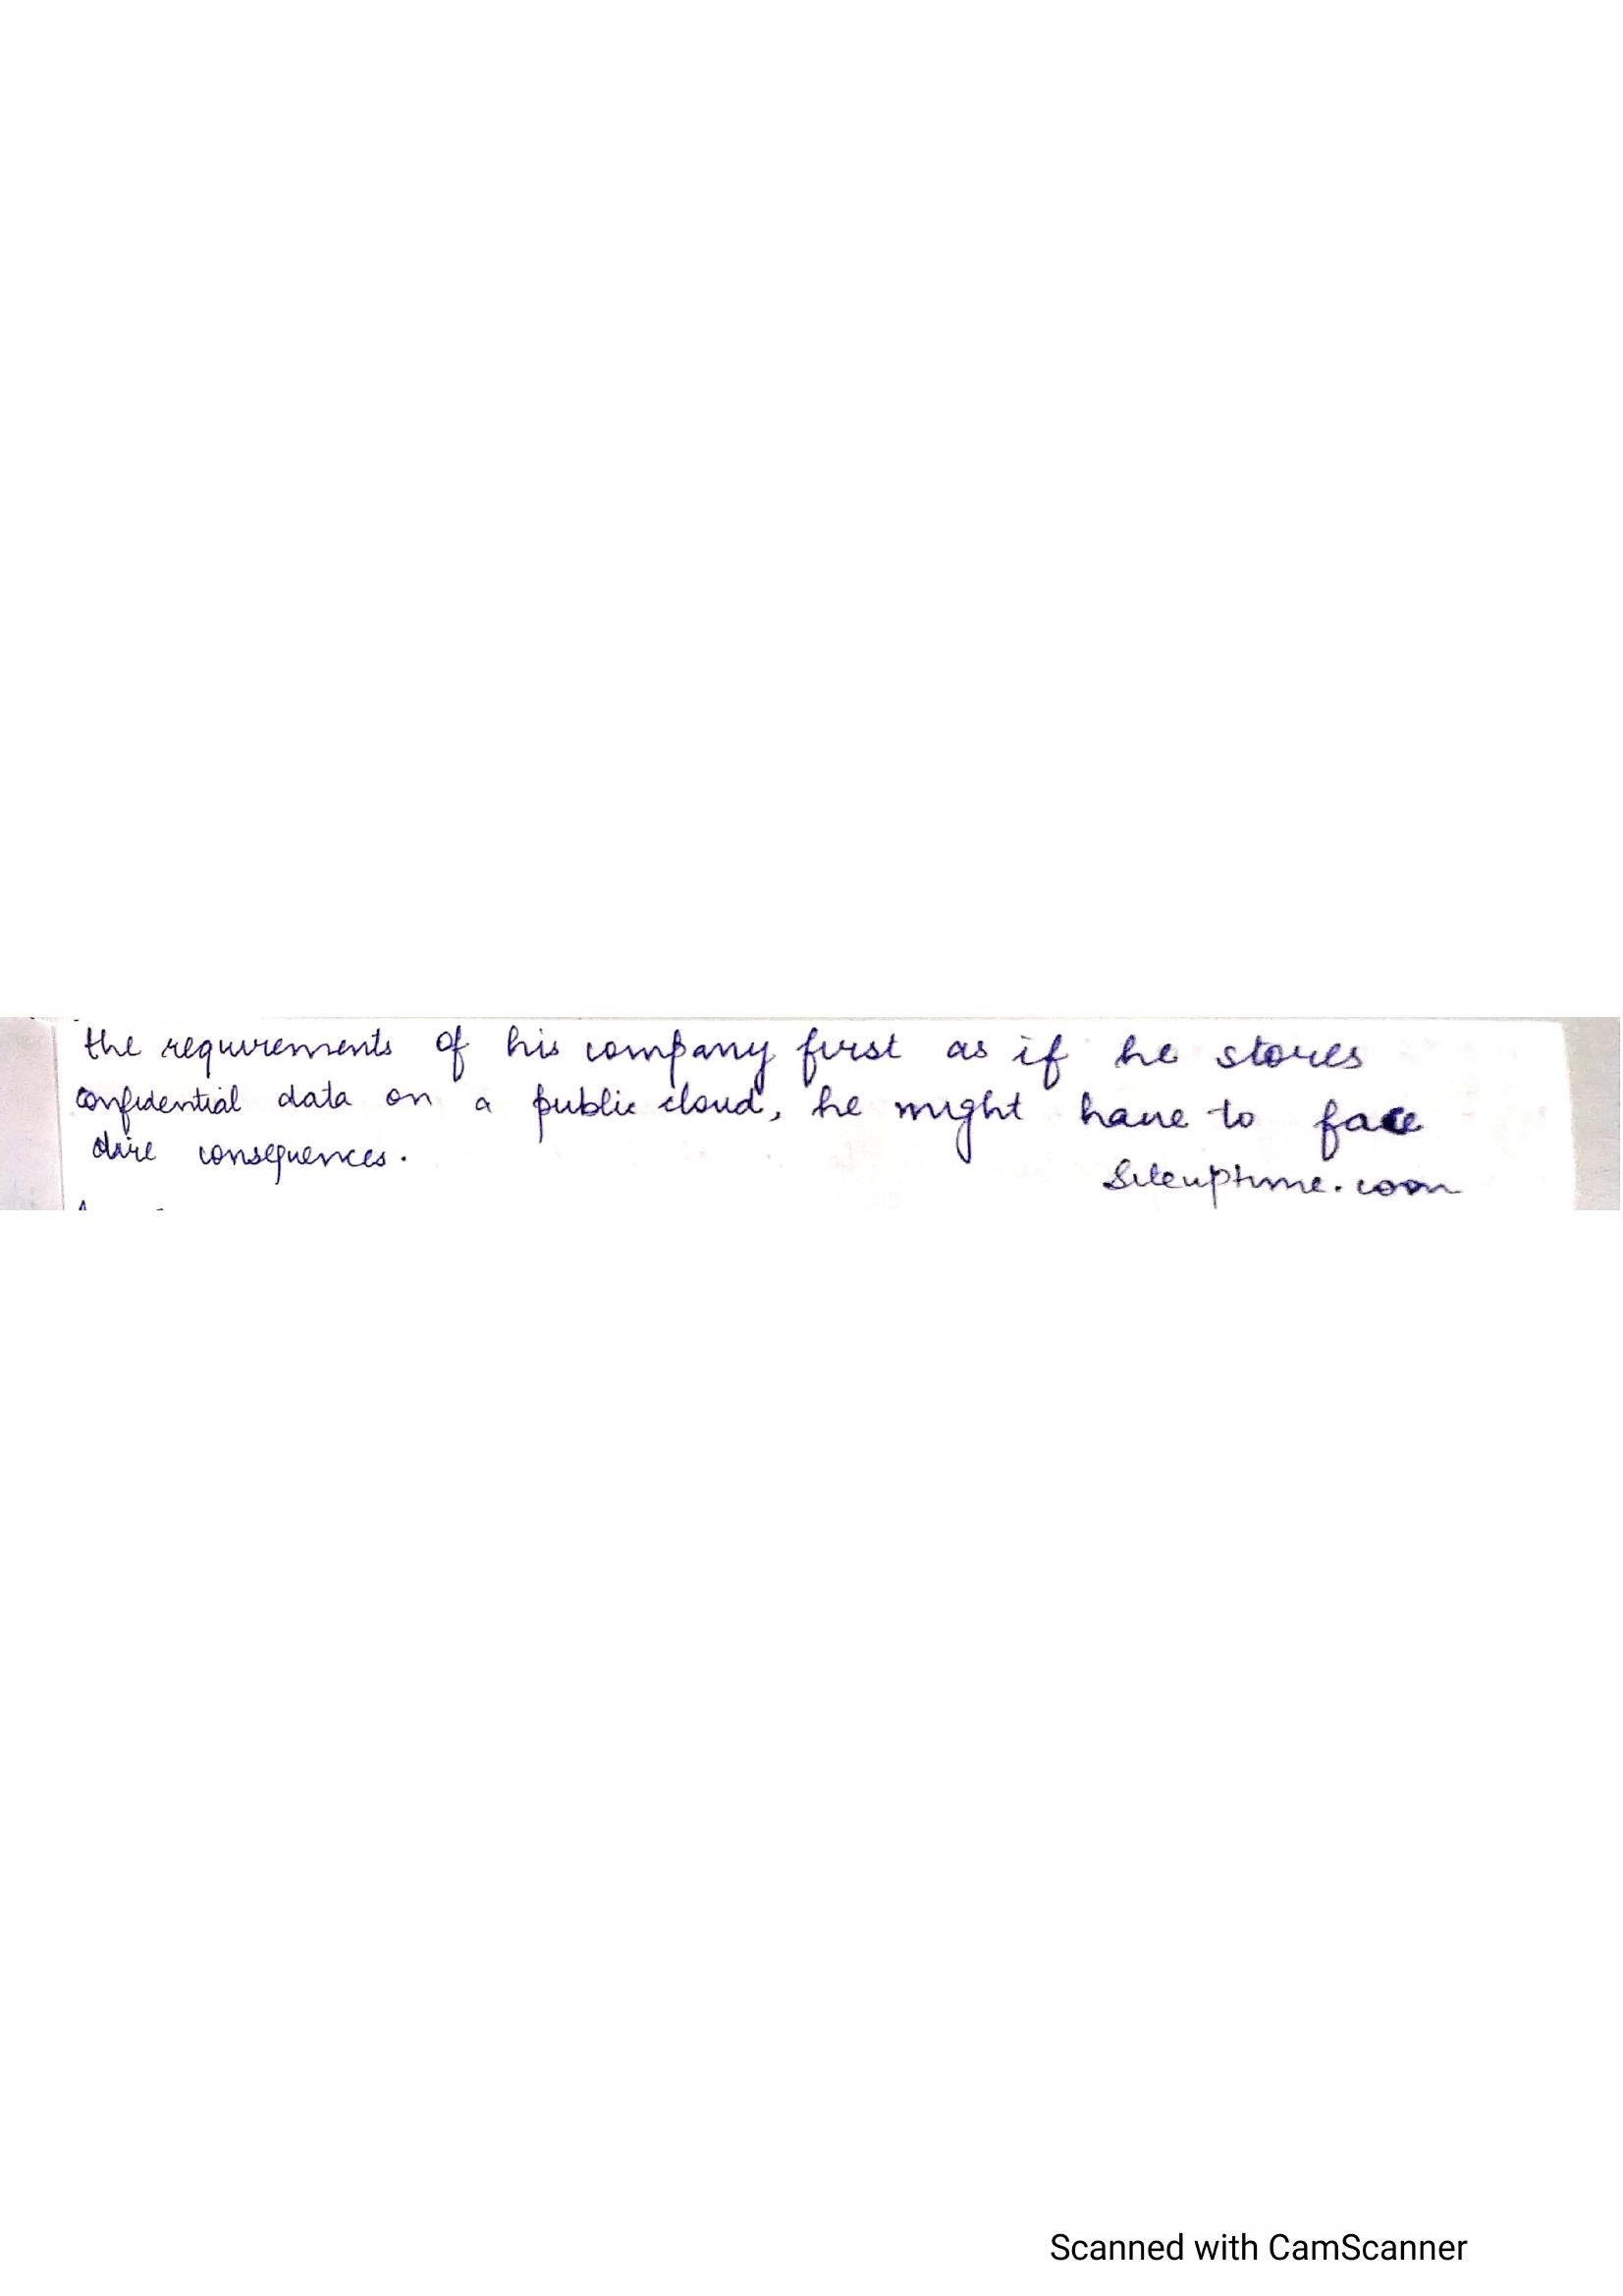 the requirements of his company first as if he stores
confidential data on a public cloud, he might have to face
dire consequences.
Siteuptime.com
Scanned with CamScanner